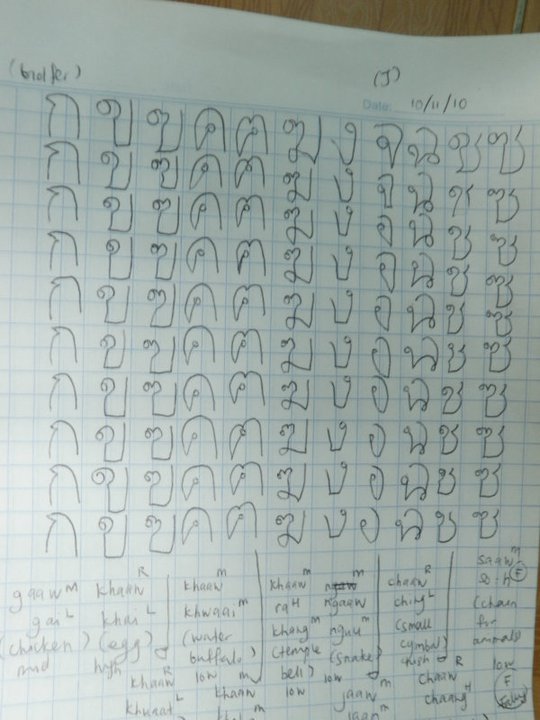 (J)
Date: 10/11/10
ก ข ฃ ค ฅ ฆ ง จ ฉ ช ซ
ก ข ฃ ค ฅ ฆ ง จ ฉ ช ซ
ก ข ฃ ค ฅ ฆ ง จ ฉ ช ซ
ก ข ฃ ค ฅ ฆ ง จ ฉ ช ซ
ก ข ฃ ค ฅ ฆ ง จ ฉ ช ซ
ก ข ฃ ค ฅ ฆ ง จ ฉ ช ซ
ก ข ฃ ค ฅ ฆ ง จ ฉ ช ซ
ก ข ฃ ค ฅ ฆ ง จ ฉ ช ซ
ก ข ฃ ค ฅ ฆ ง จ ฉ ช ซ
ก ข ฃ ค ฅ ฆ ง จ ฉ ช ซ
gaaw M khaaw R khaaw M khaaw M M chaaw R saaw M
gai L khai L khwaai M raH ngaaw ching L
(chicken) (egg) (water khang M nguu M (small (chain
mid high buffalo) (temple (snake) cymbal) for
khaaw R low bell) low high animals)
khuaat L khaaw M low jaaw M chaaw R low
chaang H